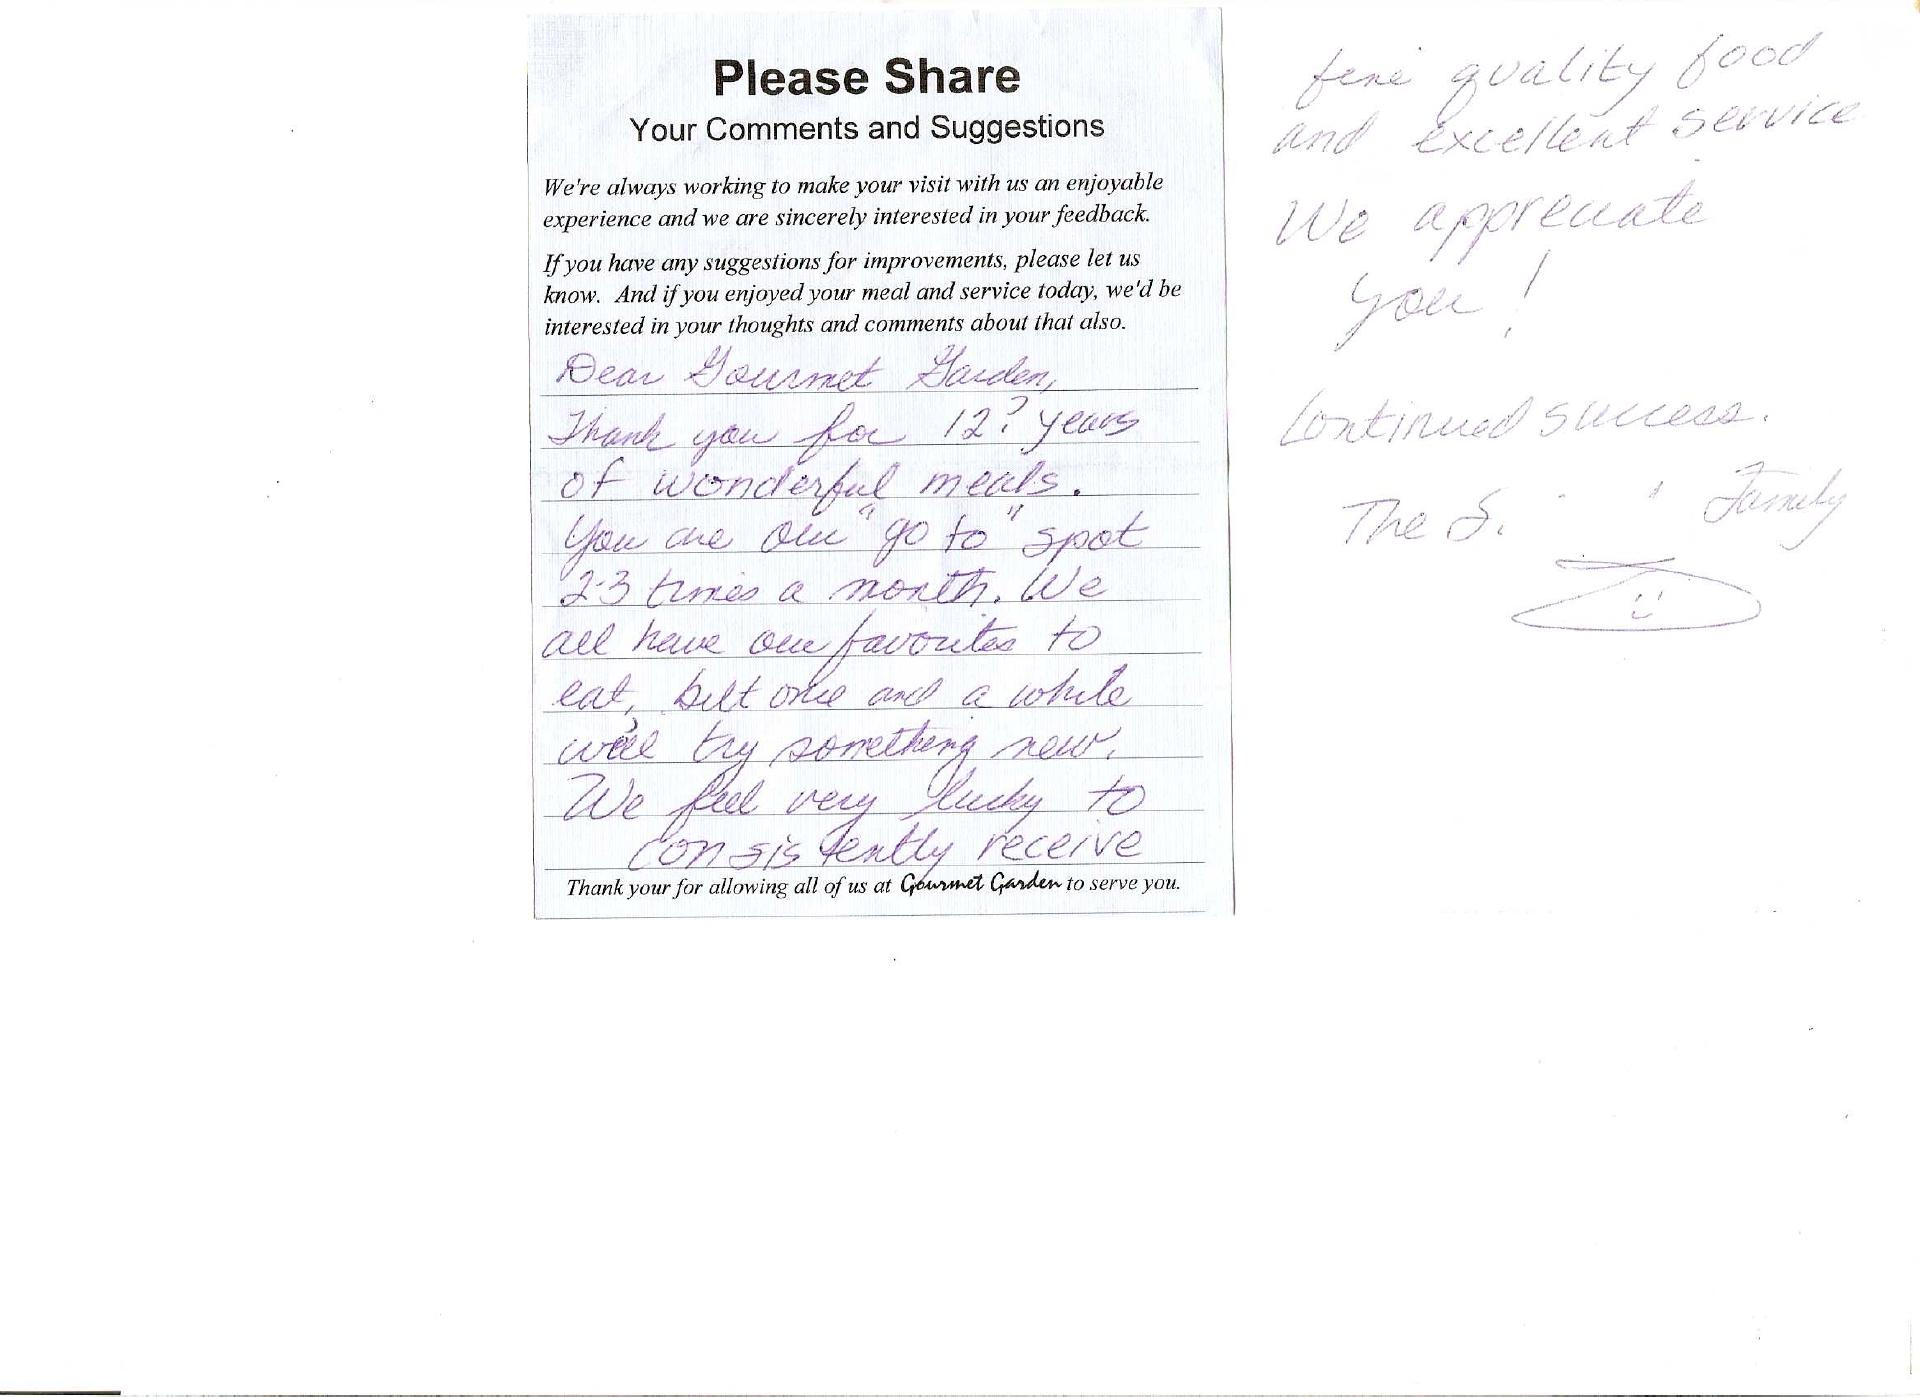 Please Share
Your Comments and Suggestions
We're always working to make your visit with us an enjoyable
experience and we are sincerely interested in your feedback.
If you have any suggestions for improvements, please let us
know. And if you enjoyed your meal and service today, we'd be
interested in your thoughts and comments about that also.
Dear Gourmet Garden,
Thank you for 12? years
of wonderful meals.
You are our "go to" spot
2-3 times a month. We
all have our favorites to
eat, but once and a while
we'll try something new.
We feel very lucky to
consistently receive
Thank your for allowing all of us at Gourmet Garden to serve you.
fine quality food
and excellent service
We appreciate
you!
Continued success.
The S. Family